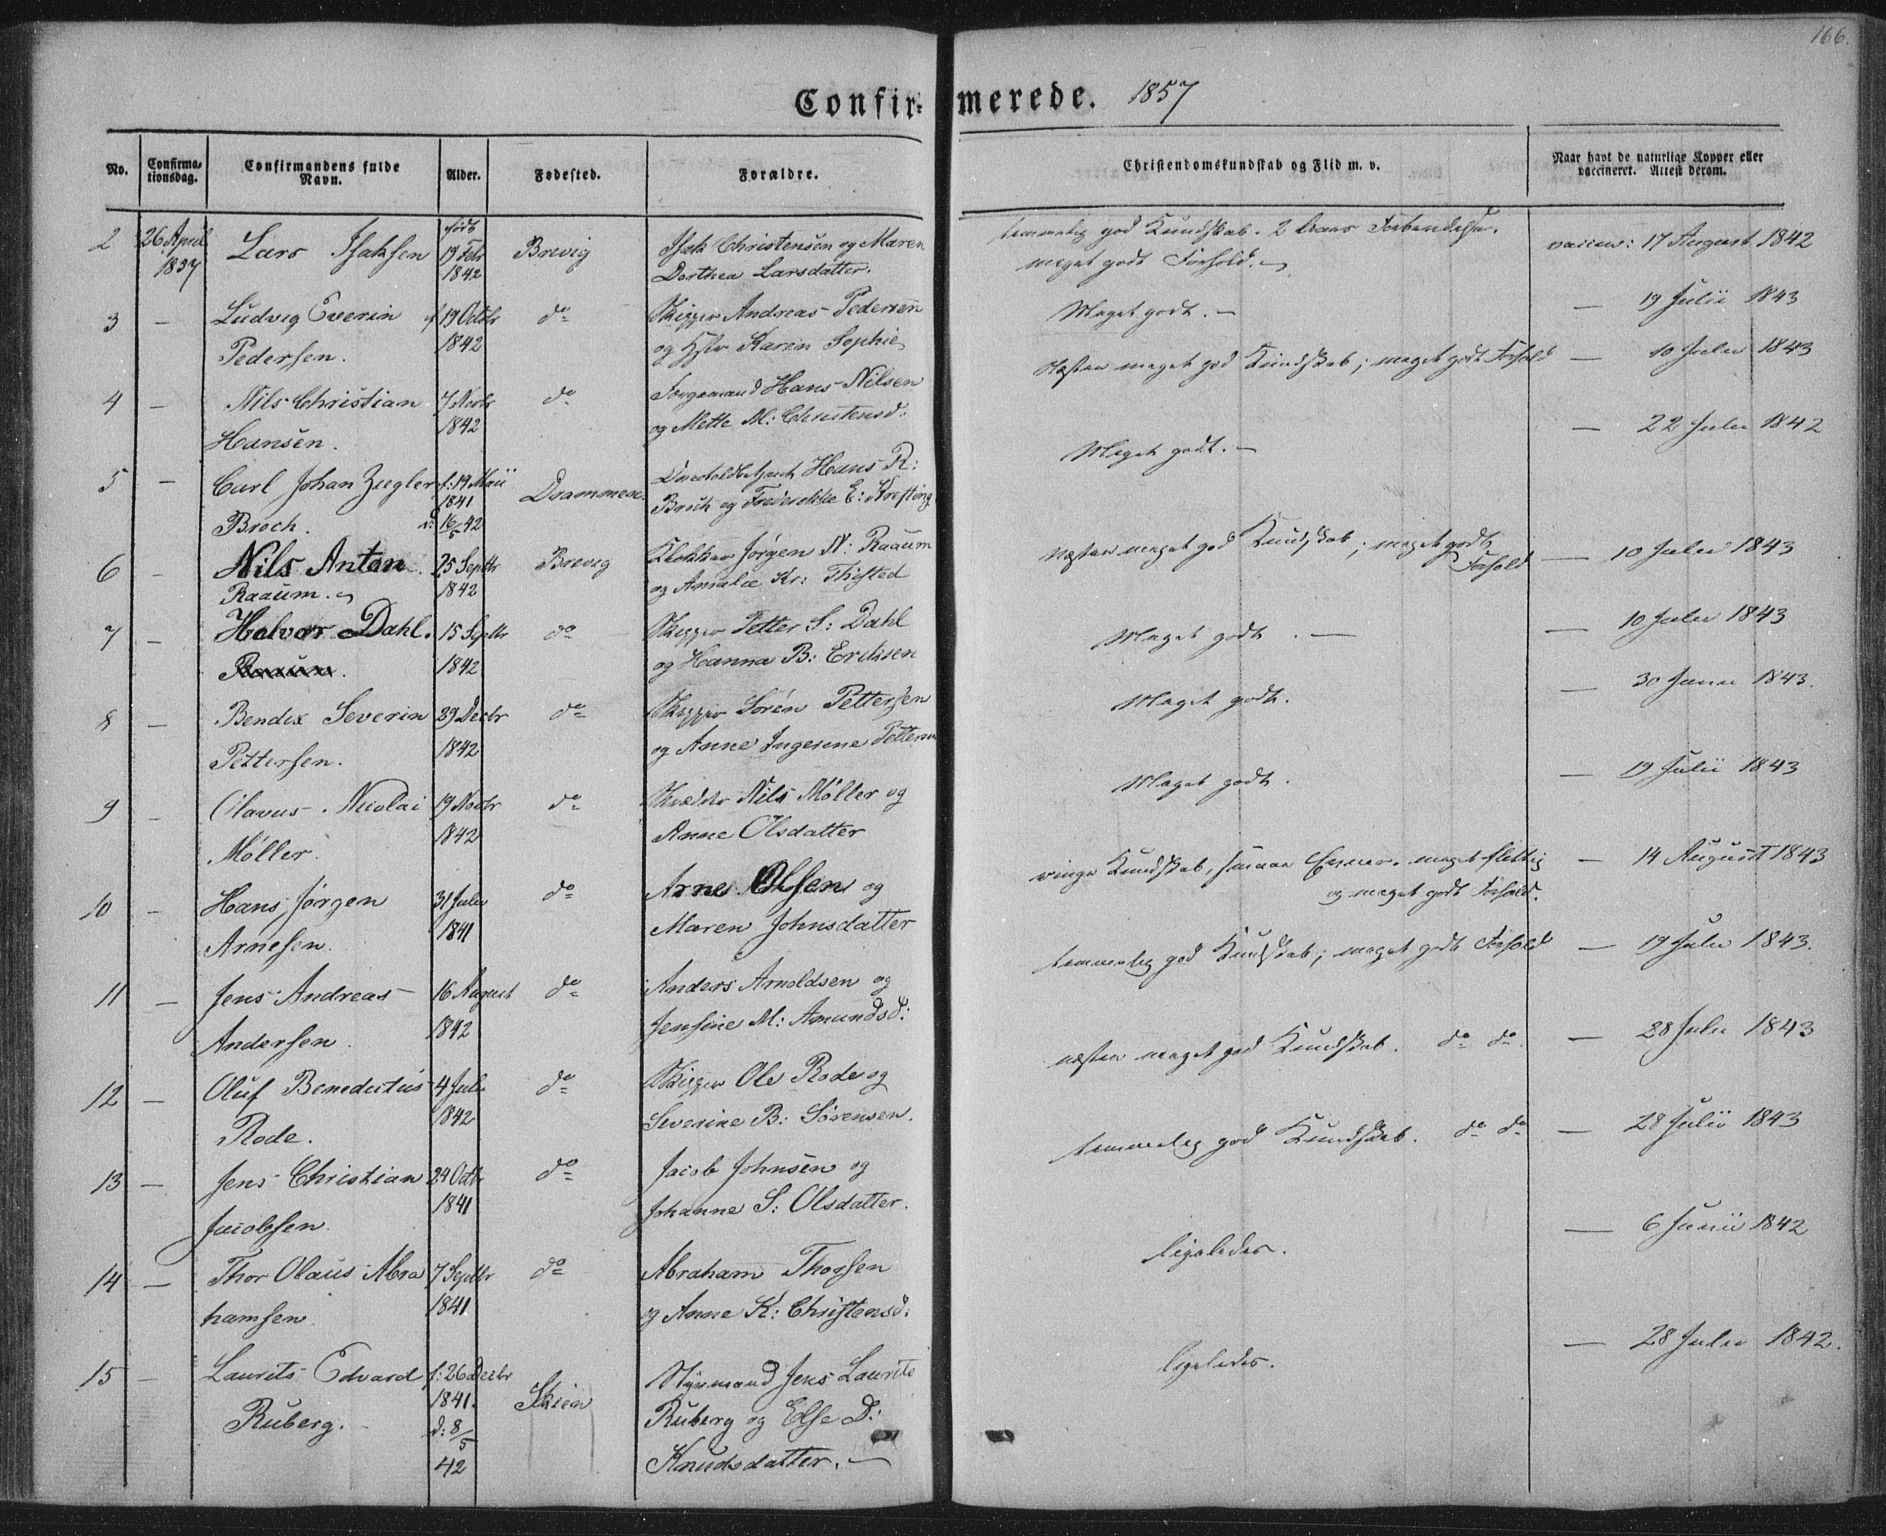 166.
Confir- merede. 1857
No. Confirma-tionsdag. Confirmandens fulde Navn. Alder. Fødested. Forældre. Christendomskundskab og Flid m. v. Naar havt de naturlige Kopper eller vaccineret. Attest derom.
2 26 April Lars Isaksen født Brevig Isak Christensen og Maren temmelig god Kundskab. vaccin: 17 August 1842
1857 19 Febr 1842 Dorthea Larsdatter. meget godt Forhold.
3 — Ludvig Everin f 19 Octbr do Skipper Andreas Pedersen Meget godt. — — 19 Julii 1843
Pedersen. 1842 og Hstr Karen Sophie
4 — Nils Christian 7 Novbr do Hans Nilsen Næsten meget god Kundskab; meget godt Forhold — 10 Julii 1843
Hansen. 1842 og Mette M: Christensd:
5 — Carl Johan Ziegler f: 19 Maii Drammen. Hans R: Meget godt. — — 22 Julii 1842
Broch. 1841 d: 16/5 42 Broch og Frederikke E: Krefting
6 — Nils Anton 25 Septbr Brevig Klokker Jørgen N: Raaum Næsten meget god Kundskab; meget godt Forhold — 10 Julii 1843
Raaum. 1842 og Amalie Kr: Thisted
7 — Halvor Dahl. 15 Septbr do Skipper Petter S: Dahl Meget godt. — — 10 Julii 1843
Raaum. 1842 og Hanna B: Eriksen
8 — Bendix Severin 29 Decbr do Skipper Sørén Pettersen Meget godt. — 30 1843.
Pettersen. 1842 og Anne Ingerine Petters
9 — Olavus Nicolai 19 Novbr do Nils Møller og Meget godt. — 19 Julii 1843
Møller. 1842 Anne Olsdatter
10 — Hans Jørgen 31 Julii do Arne Olsen og ringe Kundskab, meget flittig — 14 August 1843
Arnesen. 1841 Maren Johnsdatter og meget godt Forhold.
11 — Jens Andreas 16 August do Anders Arnoldsen og temmelig god Kundskab; meget godt Forhold — 19 Julii 1843.
Andersen. 1842 Jensine M: Amundsd:
12 — Oluf Benedictus 4 Juli do Skipper Ole Rode og næsten meget god Kundskab. do do. — 28 Julii 1843
Rode. 1842 Severine B: Sørensen.
13 — Jens Christian 24 Octbr do Jacob Johnsen og temmelig god Kundskab. do do — 28 Julii 1843
Jacobsen. 1841 Johanne S: Olsdatter.
14 — Thor Olaus Abra 7 Septbr do Abraham Thorsen ligeledes. — 6 Junii 1842
hamsen 1841 og Anne K: Christensd:
15 — Laurits Edvard f: 26 Decbr Skien Jens Laurits ligeledes. — 28 Julii 1842.
Ruberg. 1841. d: 8/5 42 Ruberg og Else D:
Knudsdatter. —